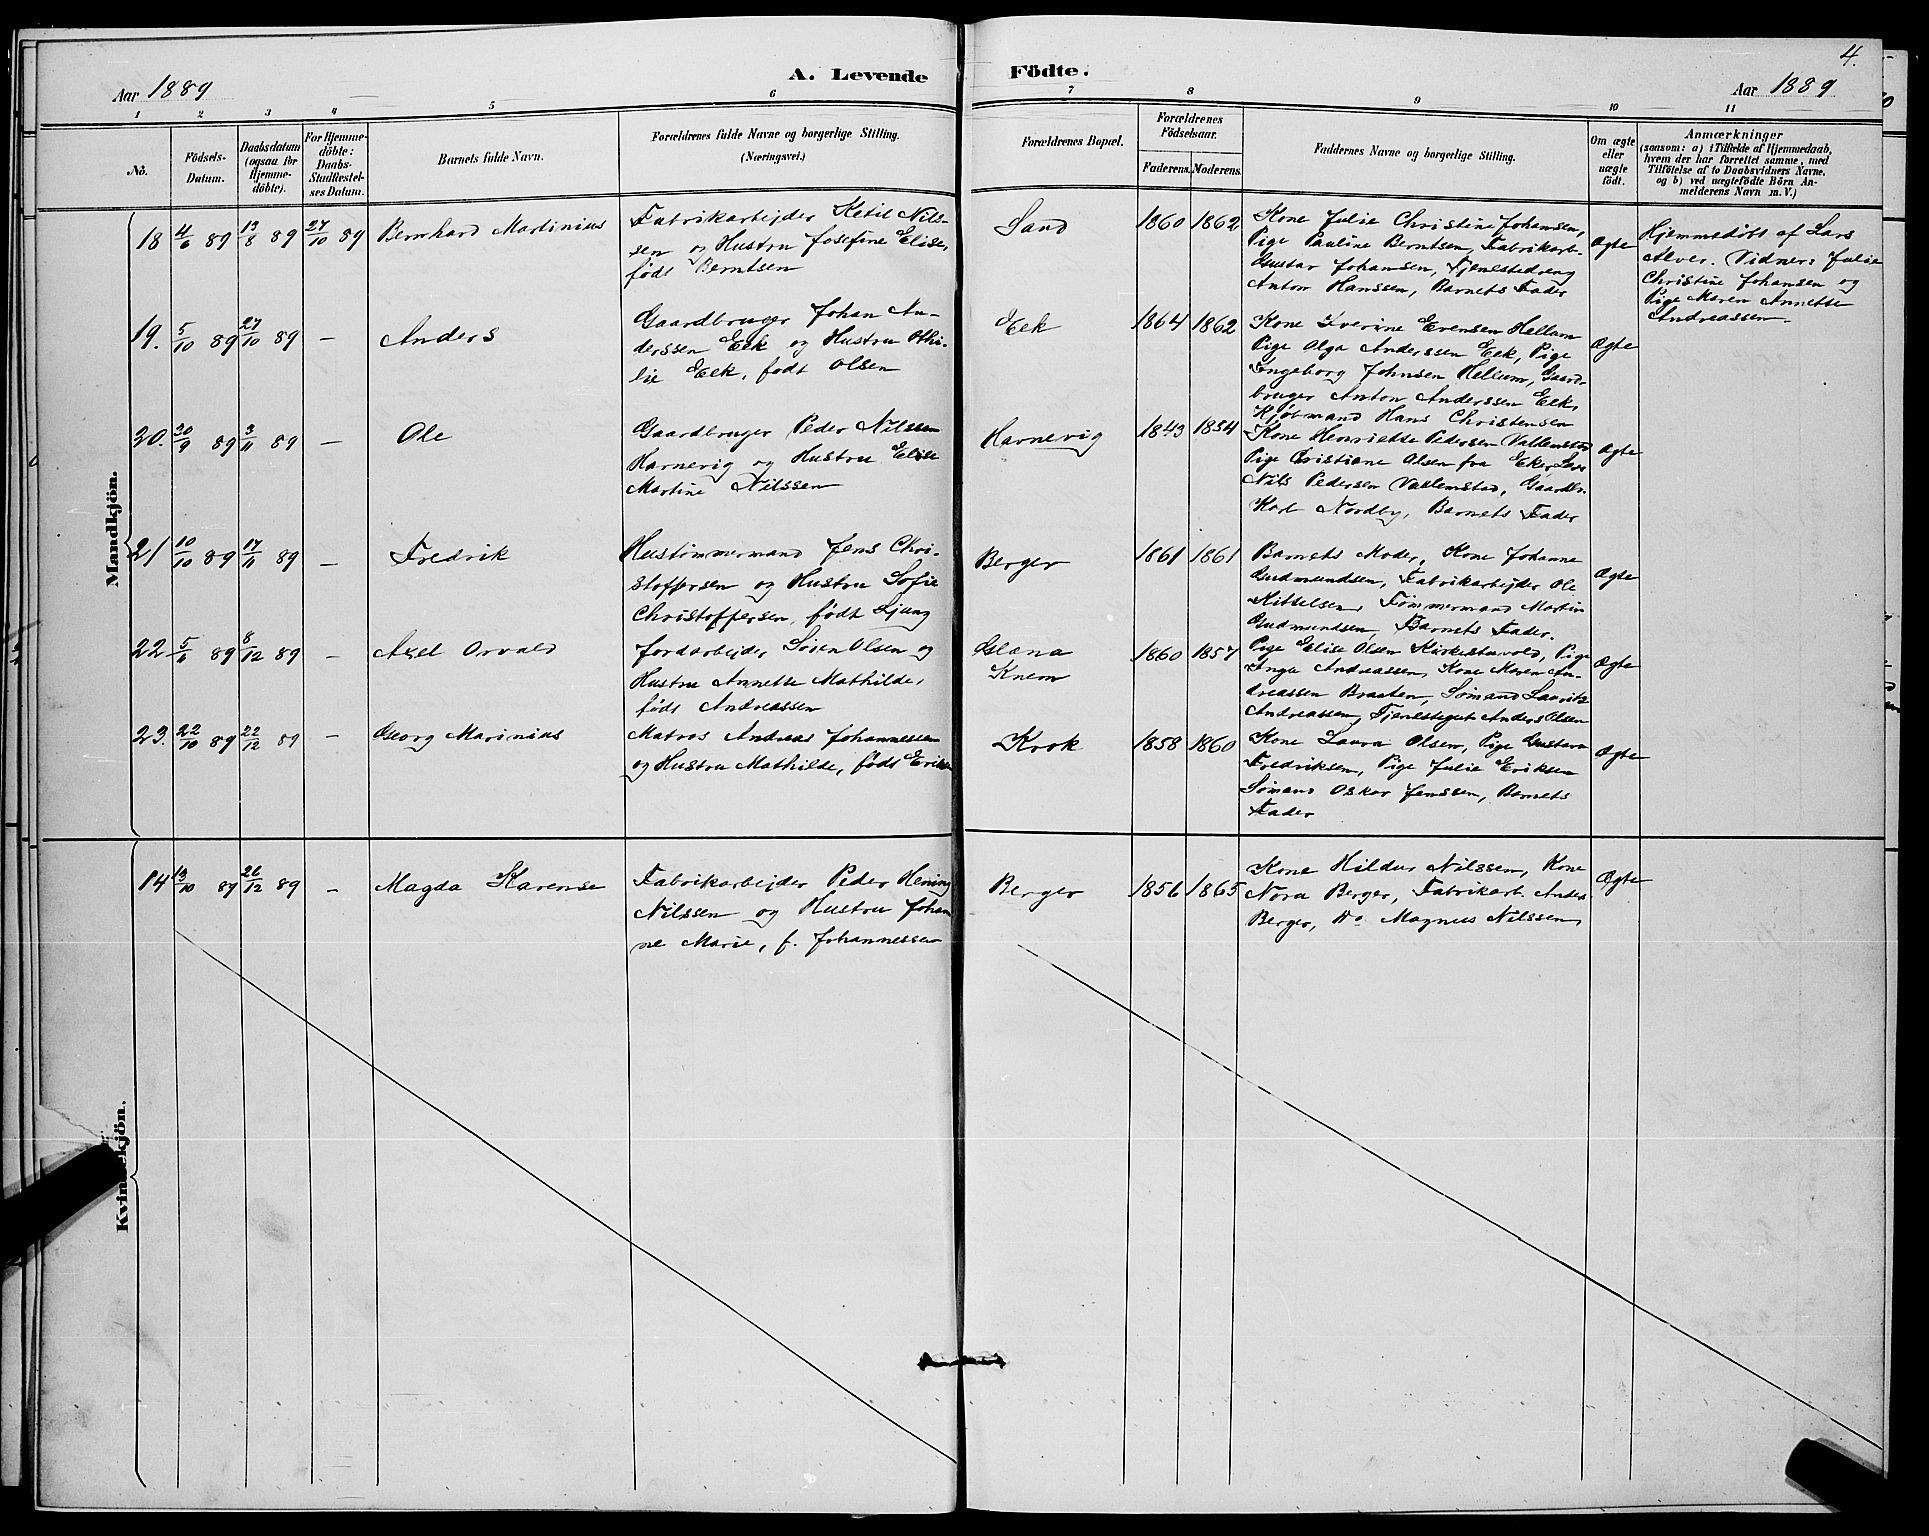 4.
Aar 1889
A. Levende Födte.
Aar 1889
1 2 3 4 5 6 7 8 9 10 11
No.
Födsels-
Datum.
Daabsdatum
(ogsaa for
Hjemme-
döbte).
For Hjemme-
döbte:
Daabs-
Stadfæstel-
ses Datum.
Barnets fulde Navn.
Forældrenes fulde Navne og borgerlige Stilling.
(Næringsvei.)
Forældrenes Bopæl.
Forældrenes
Födselsaar.
Faderens. Moderens.
Faddernes Navne og borgerlige Stilling.
Om ægte
eller
uægte
födt.
Anmærkninger
(saasom: a) i Tilfælde af Hjemmedaab,
hvem der har forrettet samme, med
Tilföielse af to Daabsvidners Navne,
og b) ved uægtefödte Börn An-
melderens Navn m. V.)
Mandkjön.
18 4/6 89 13/8 89 27/10 89 Bernhard Martinius
Fabrikarbejder Ketil Nils-
sen og Hustru Josefine Elise,
født Berntsen
Sand 1860 1862
Kone Julie Christine Johansen,
Pige Pauline Berntsen, Fabrikarb.
Gustav Johansen, Tjenestedreng
Anton Hanssen, Barnets Fader
Ægte
Hjemmedøbt af Lars
Alver. Vidner: Julie
Christine Johansen og
Pige Maren Annette
Andreassen.
19. 5/10 89 27/10 89 — Anders
Gaardbruger Johan An-
derssen Eek og Hustru Othi-
lie Eek, født Olsen
Eek 1864 1862
Kone Iverine Evensen Hellum
Pige Olga Anderssen Eek, Pige
Ingeborg Johnsen Hellum, Gaard-
bruger Anton Anderssen Eek,
Kjøbmand Hans Christensen
Ægte
20. 30/9 89 3/11 89 — Ole
Gaardbruger Peder Nilssen
Havnevig og Hustru Elise
Martine Nilssen
Havnevig 1843 1854
Kone Henriette Pedersen Vallemstad
Pige Cristiane Olsen fra Eker,
Nils Pedersen Vallemstad, Gaardbr.
Karl Nordby, Barnets Fader
Ægte
21 10/10 89 17/11 89 — Fredrik
Hustømmermand Jens Chri-
stoffersen og Hustru Sofie
Christoffersen, født Ljung
Berger 1861 1861
Barnets Moder, Kone Johanne
Gudmundsen, Fabrikarbejder Ole
Kittelsen, Tømmermand Martin
Gudmundsen, Barnets Fader.
Ægte
22 5/11 89 8/12 89 — Axel Orvald
Jordarbejder Søren Olsen og
Hustru Annette Mathilde,
født Andreassen
Knem 1860 1857
Pige Elise Olsen Kirkestuvold, Pige
Inga Andreassen, Kone Maren An-
dreassen Braaten, Sømand Lauritz
Andreassen, Tjenestegut Anders Olsen
Ægte
23. 22/10 89 22/12 89 — Georg Marinius
Matros Andreas Johannessen
og Hustru Mathilde, født Eriksen
Krok 1858 1860
Kone Laura Olsen, Pige Gustava
Fredriksen, Pige Julie Eriksen
Sømand Oskar Jenssen, Barnets
Fader
Ægte
Kvindekjön.
14 13/10 89 26/12 89 — Magda Karense
Fabrikarbejder Peder Hening
Nilssen og Hustru Johan
ne Marie, f. Johannessen
Berger 1856 1865
Kone Hildur Nilssen, Kone
Nora Berger, Fabrikarb. Anders
Berger, Do Magnus Nilssen
Ægte